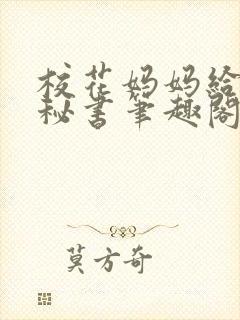 校花妈妈给
秘书笔趣阁
莫方奇